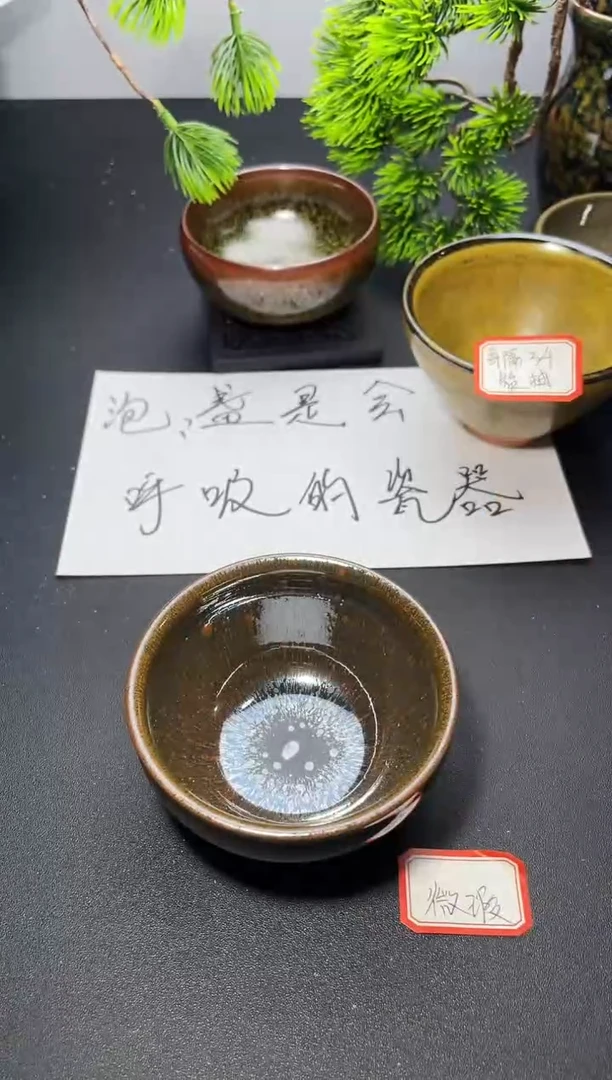 泡,盏是会
呼吸的瓷器
微瑕